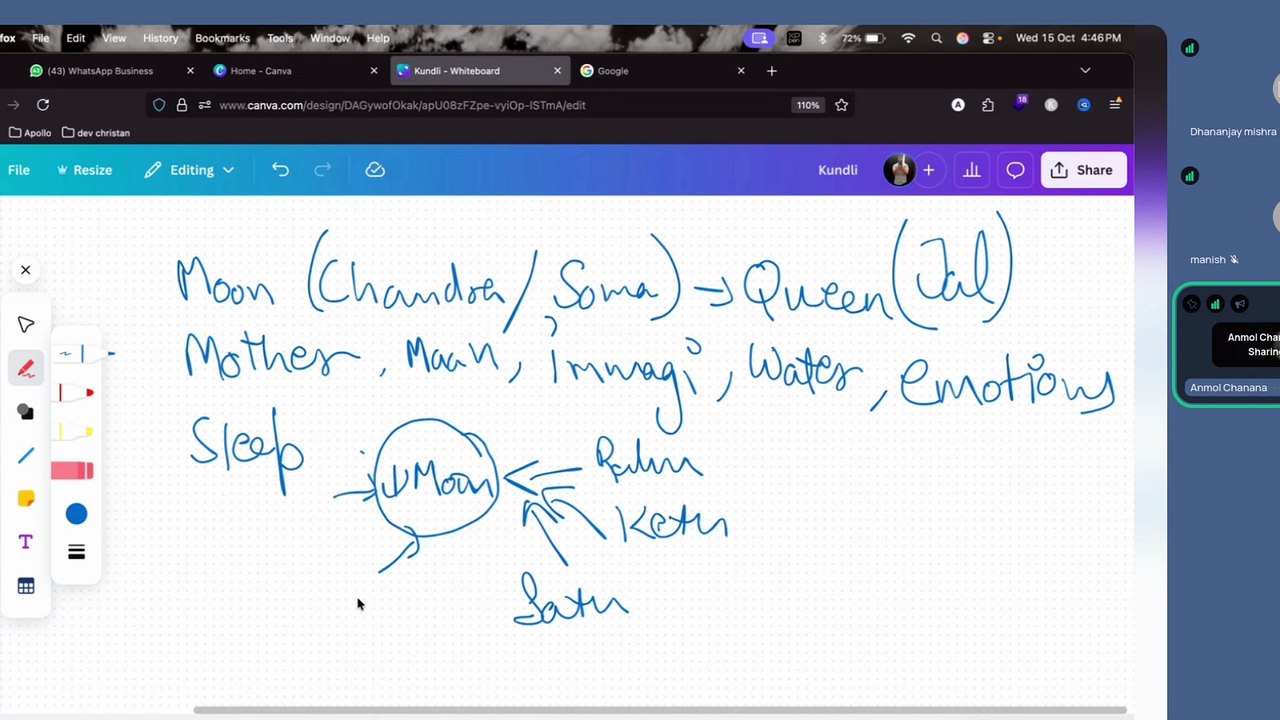 fox File Edit View History Bookmarks Tools Window Help 72% Wed 15 Oct 4:46 PM
(43) WhatsApp Business Home - Canva Kundli - Whiteboard Google
www.canva.com/design/DAGywofOkak/apU08zFZpe-vyiOp-ISTmA/edit 110% A 18 K
Apollo dev christan
File Resize Editing Kundli Share
Moon (Chandra/Soma) → Queen (Jal)
Mother, Maan, immagi, Water, emotions
Sleep
↓Moon
Rahu
Ketu
Satu
T
Dhananjay mishra
manish
Anmol Cha
Sharing
Anmol Chanana